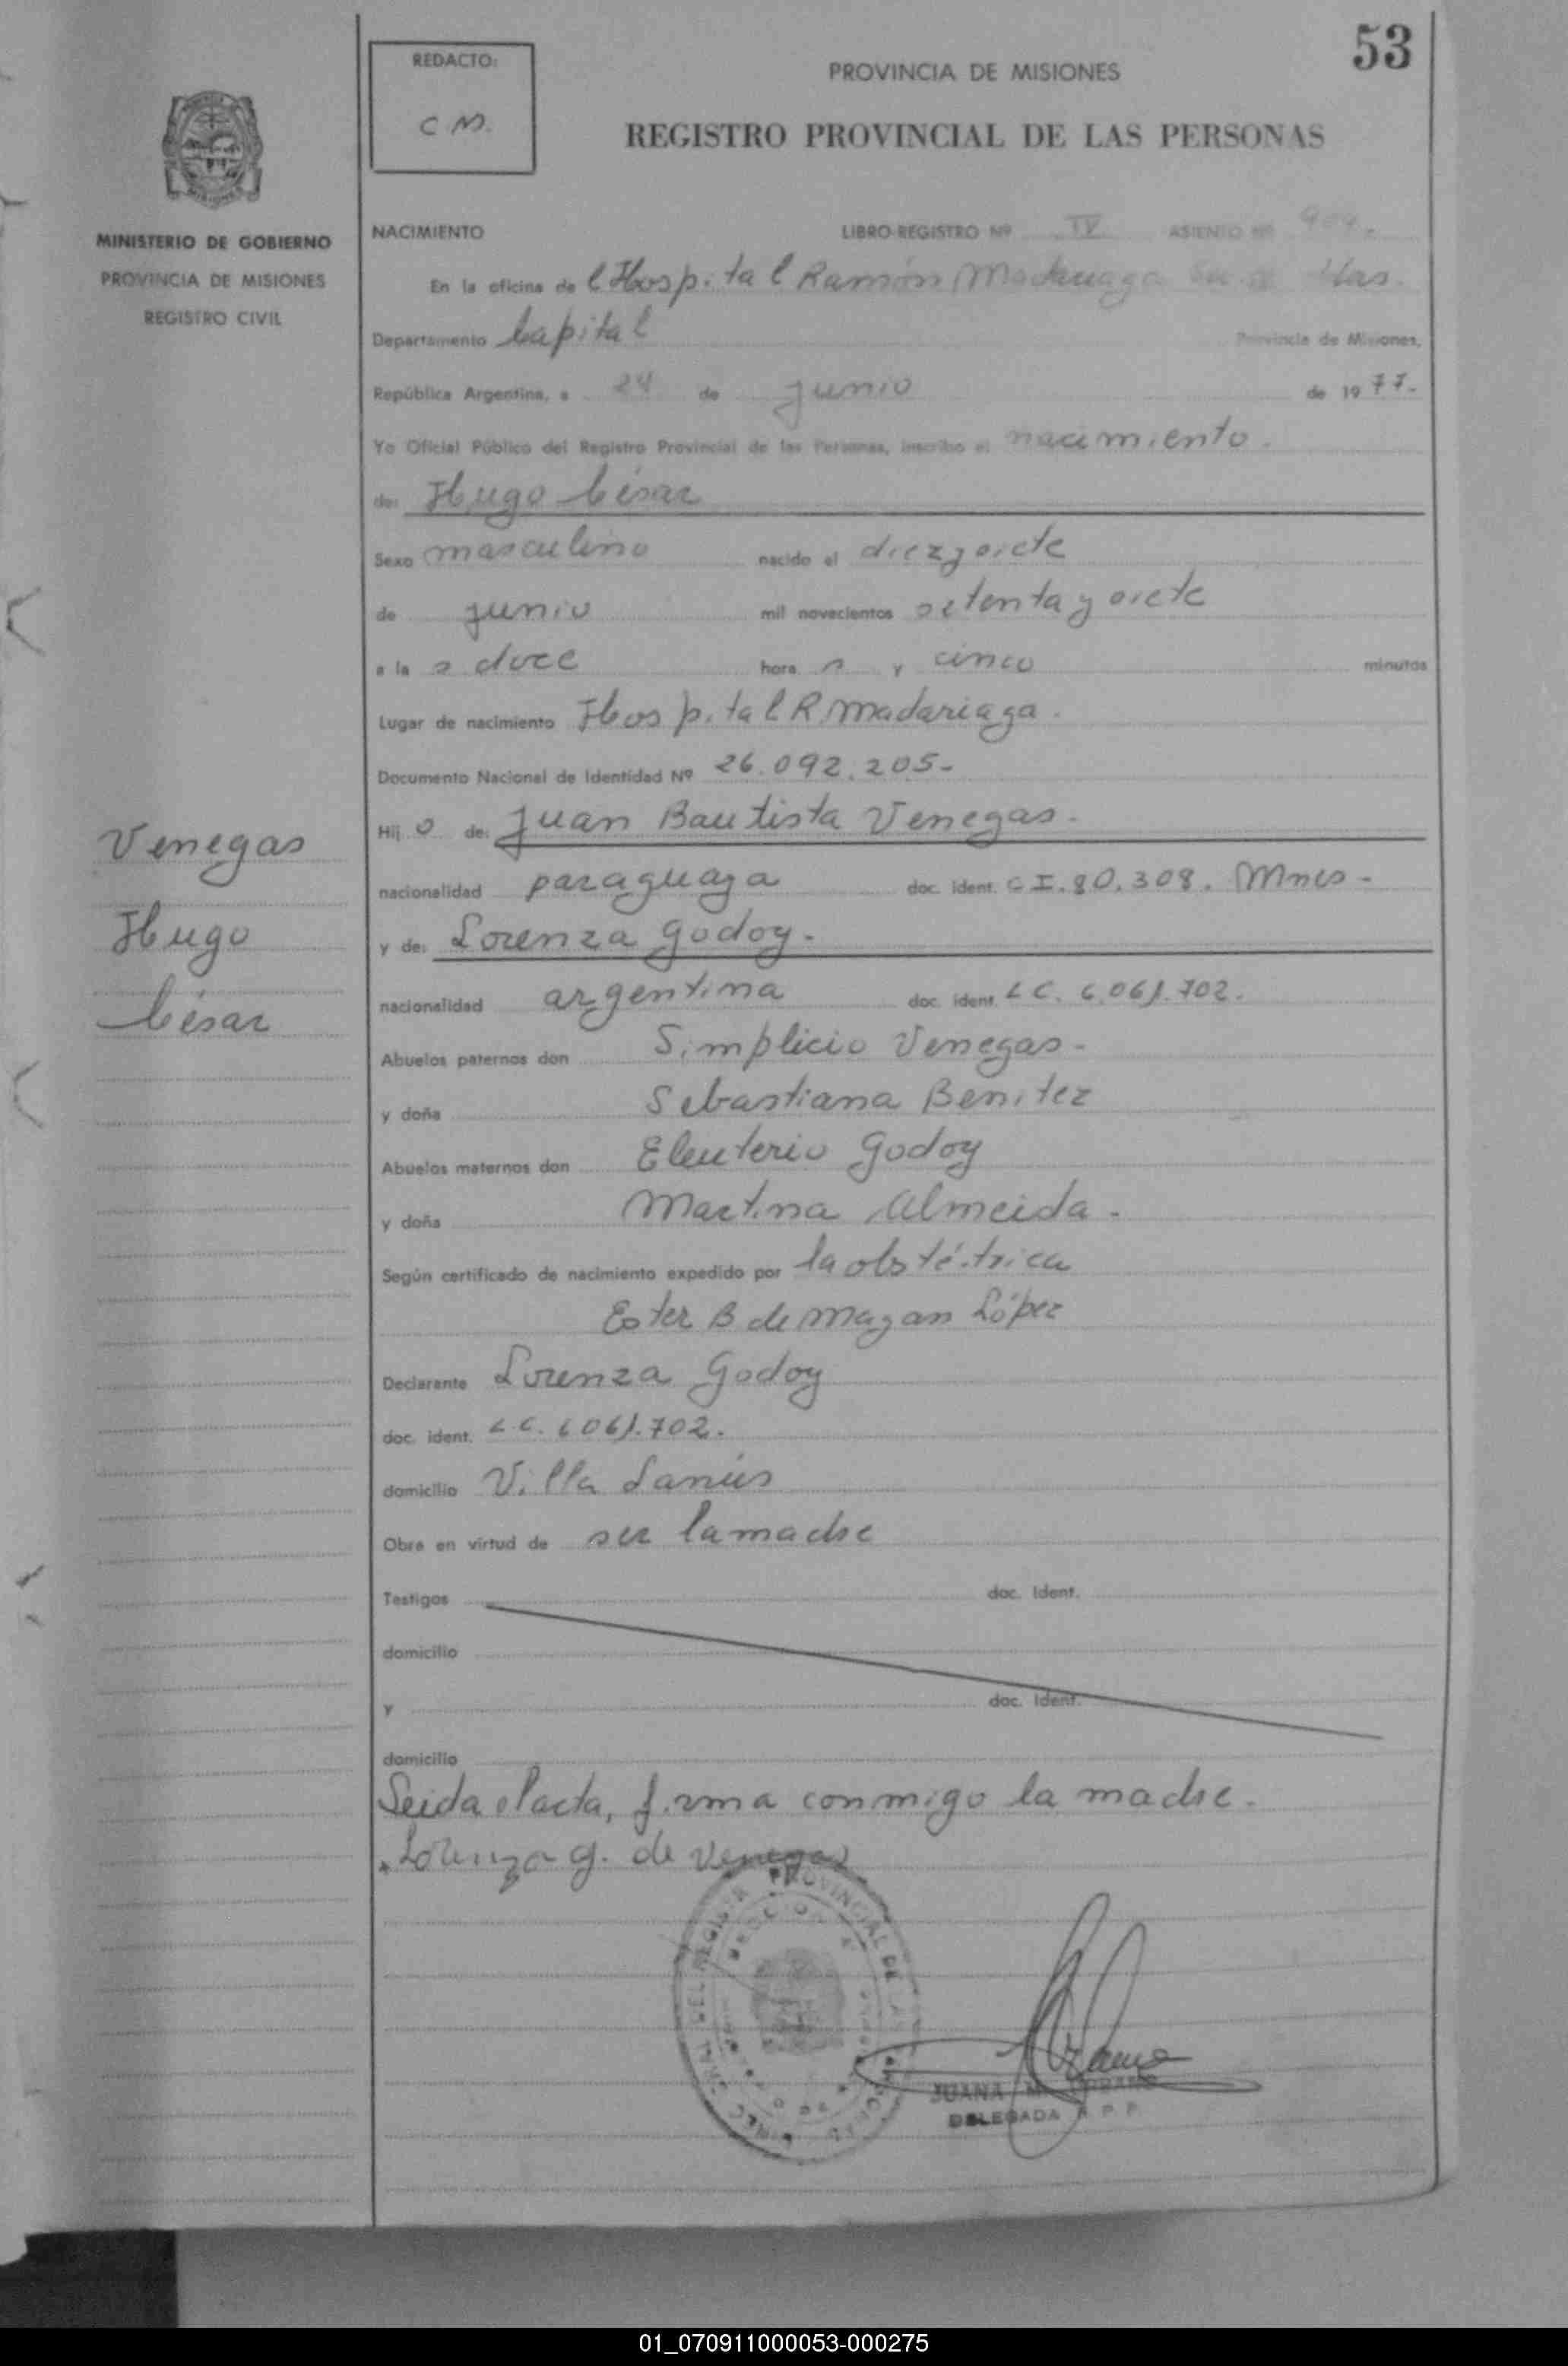 53
REDACTO:
C M.
PROVINCIA DE MISIONES
REGISTRO PROVINCIAL DE LAS PERSONAS
MINISTERIO DE GOBIERNO
PROVINCIA DE MISIONES
REGISTRO CIVIL
NACIMIENTO LIBRO-REGISTRO Nº IV ASIENTO Nº 909.
En la oficina de l Hospital Ramón Madariaga
Departamento Capital Provincia de Misiones,
República Argentina, a 24 de junio de 1977.-
Yo Oficial Público del Registro Provincial de las Personas, inscribo el nacimiento.
de: Hugo César
Sexo masculino nacido el diezysiete
de junio mil novecientos setenta y siete
a la s doce hora s y cinco minutos
Lugar de nacimiento Hospital R. Madariaga.
Documento Nacional de Identidad Nº 26.092.205-
Hij o de: Juan Bautista Venegas.-
nacionalidad paraguaya doc. ident. C I. 80.308. Mnes-
y de: Lorenza Godoy.-
nacionalidad argentina doc. ident. L C. 6.061.702.
Abuelos paternos don Simplicio Venegas-
y doña Sebastiana Benitez
Abuelos maternos don Eleuterio Godoy
y doña Martina Almeida.-
Según certificado de nacimiento expedido por la obstétrica
Ester B de Mazan López
Declarante Lorenza Godoy
doc. ident. L C. 6061.702.
domicilio Villa Lanús
Obra en virtud de ser la madre
Testigos doc. Ident.
domicilio
y doc. Ident.
domicilio
Leida el acta, firma conmigo la madre.-
Lorenza G. de Venegas
Venegas
Hugo
César
PROVINCIAL DE LAS
JUANA M.
DELEGADA R. P. P.
01_070911000053-000275